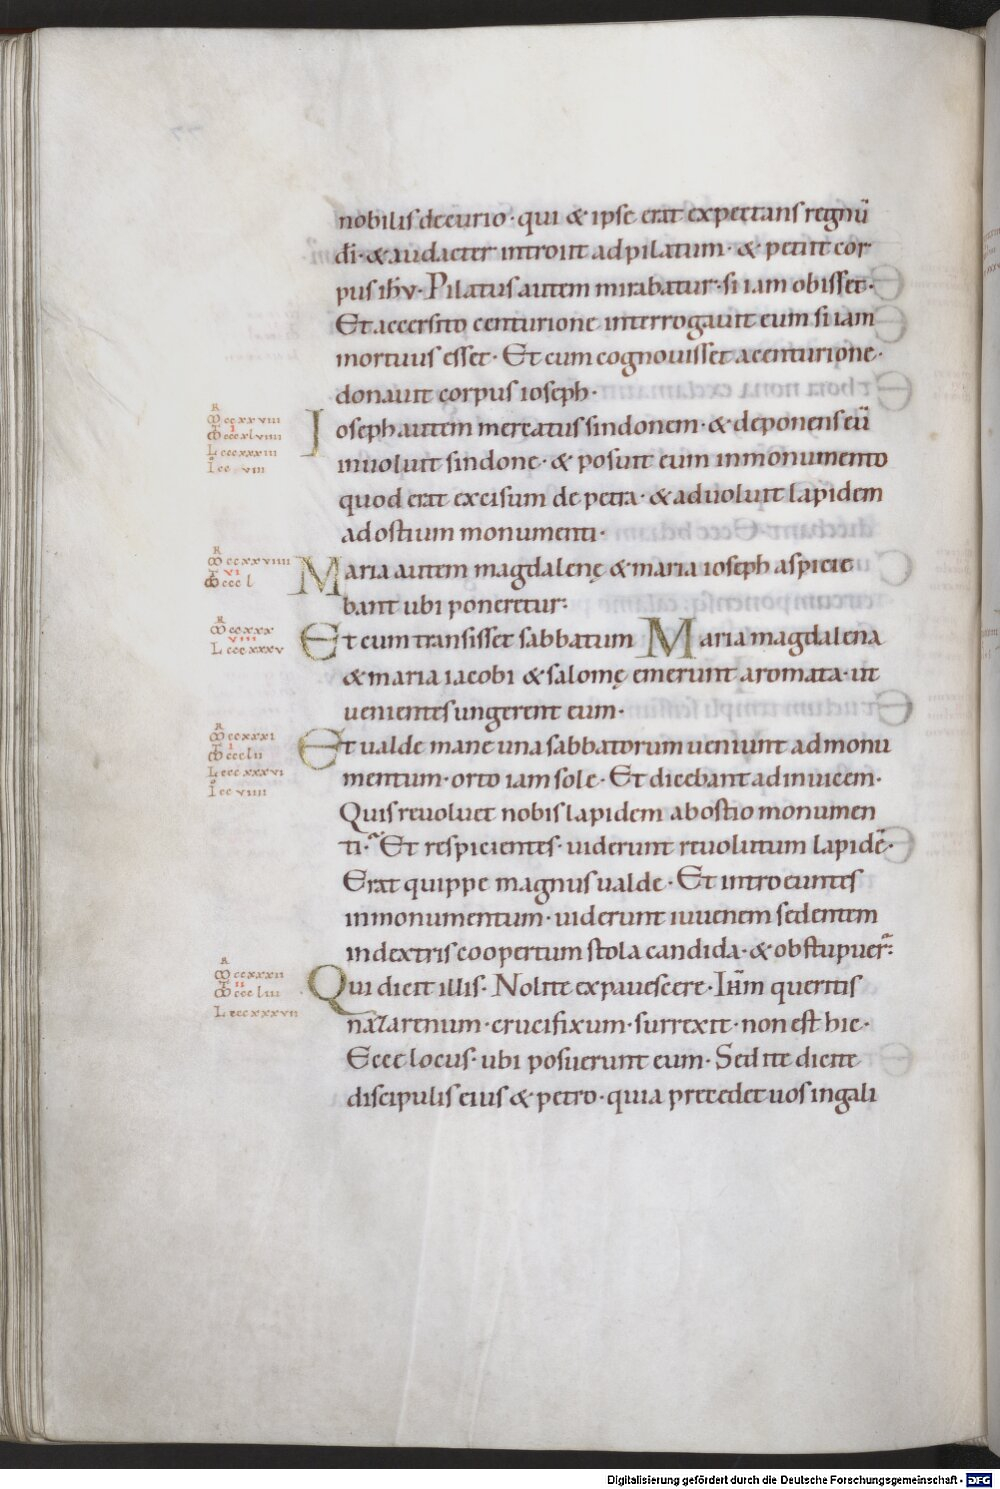 nobilis decurio · qui & ipse erat expectans regnū
dī · & audacter introiit ad pilatum · & petiit cor
pus ihū · Pilatus autem mirabatur · si iam obisset ·
Et accersito centurione interrogauit eum si iam
mortuus esset · Et cum cognouisset a centurione ·
donauit corpus ioseph ·
Ioseph autem mercatus sindonem · & deponens eū
inuoluit sindone · & posuit eum in monumento
quod erat excisum de petra · & aduoluit lapidem
ad ostium monumenti ·
Maria autem magdalenę & maria ioseph aspicie
bant ubi poneretur :
Et cum transisset sabbatum Maria magdalena
& maria iacobi & salomę emerunt aromata · ut
uenientes ungerent eum ·
Et ualde mane una sabbatorum ueniunt ad monu
mentum · orto iam sole · Et dicebant ad inuicem ·
Quis reuoluet nobis lapidem ab ostio monumen
ti · Et respicientes · uiderunt reuolutum lapidē ·
Erat quippe magnus ualde · Et introeuntes
in monumentum · uiderunt iuuenem sedentem
in dextris coopertum stola candida · & obstupuer̄ :
Qui dicit illis · Nolite expauescere · Ihm̄ queritis
nazarenum · crucifixum · surrexit · non est hic ·
Ecce locus · ubi posuerunt eum · Sed ite dicite
discipulis eius & petro · quia precedet uos in gali
Digitalisierung gefördert durch die Deutsche Forschungsgemeinschaft - DFG